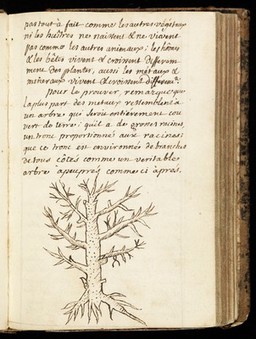 pas tout à fait comme les autres végétaux
ni les huîtres ne naissent & ne vivent
pas comme les autres animaux; les hômes
& les bêtes vivent & croissent differem
ment des plantes, aussi les metaux &
mineraux vivent & croissent differem.t
pour le prouver, remarquez que
la plus part des metaux ressemblent à
un arbre qui seroit entierement cou
vert de terre; qu'il a de grosses racines,
un tronc proportionné aux racines
que ce tronc est environnés de branches
de tous côtés comme un veritable
arbre apeuprés comme ci après.